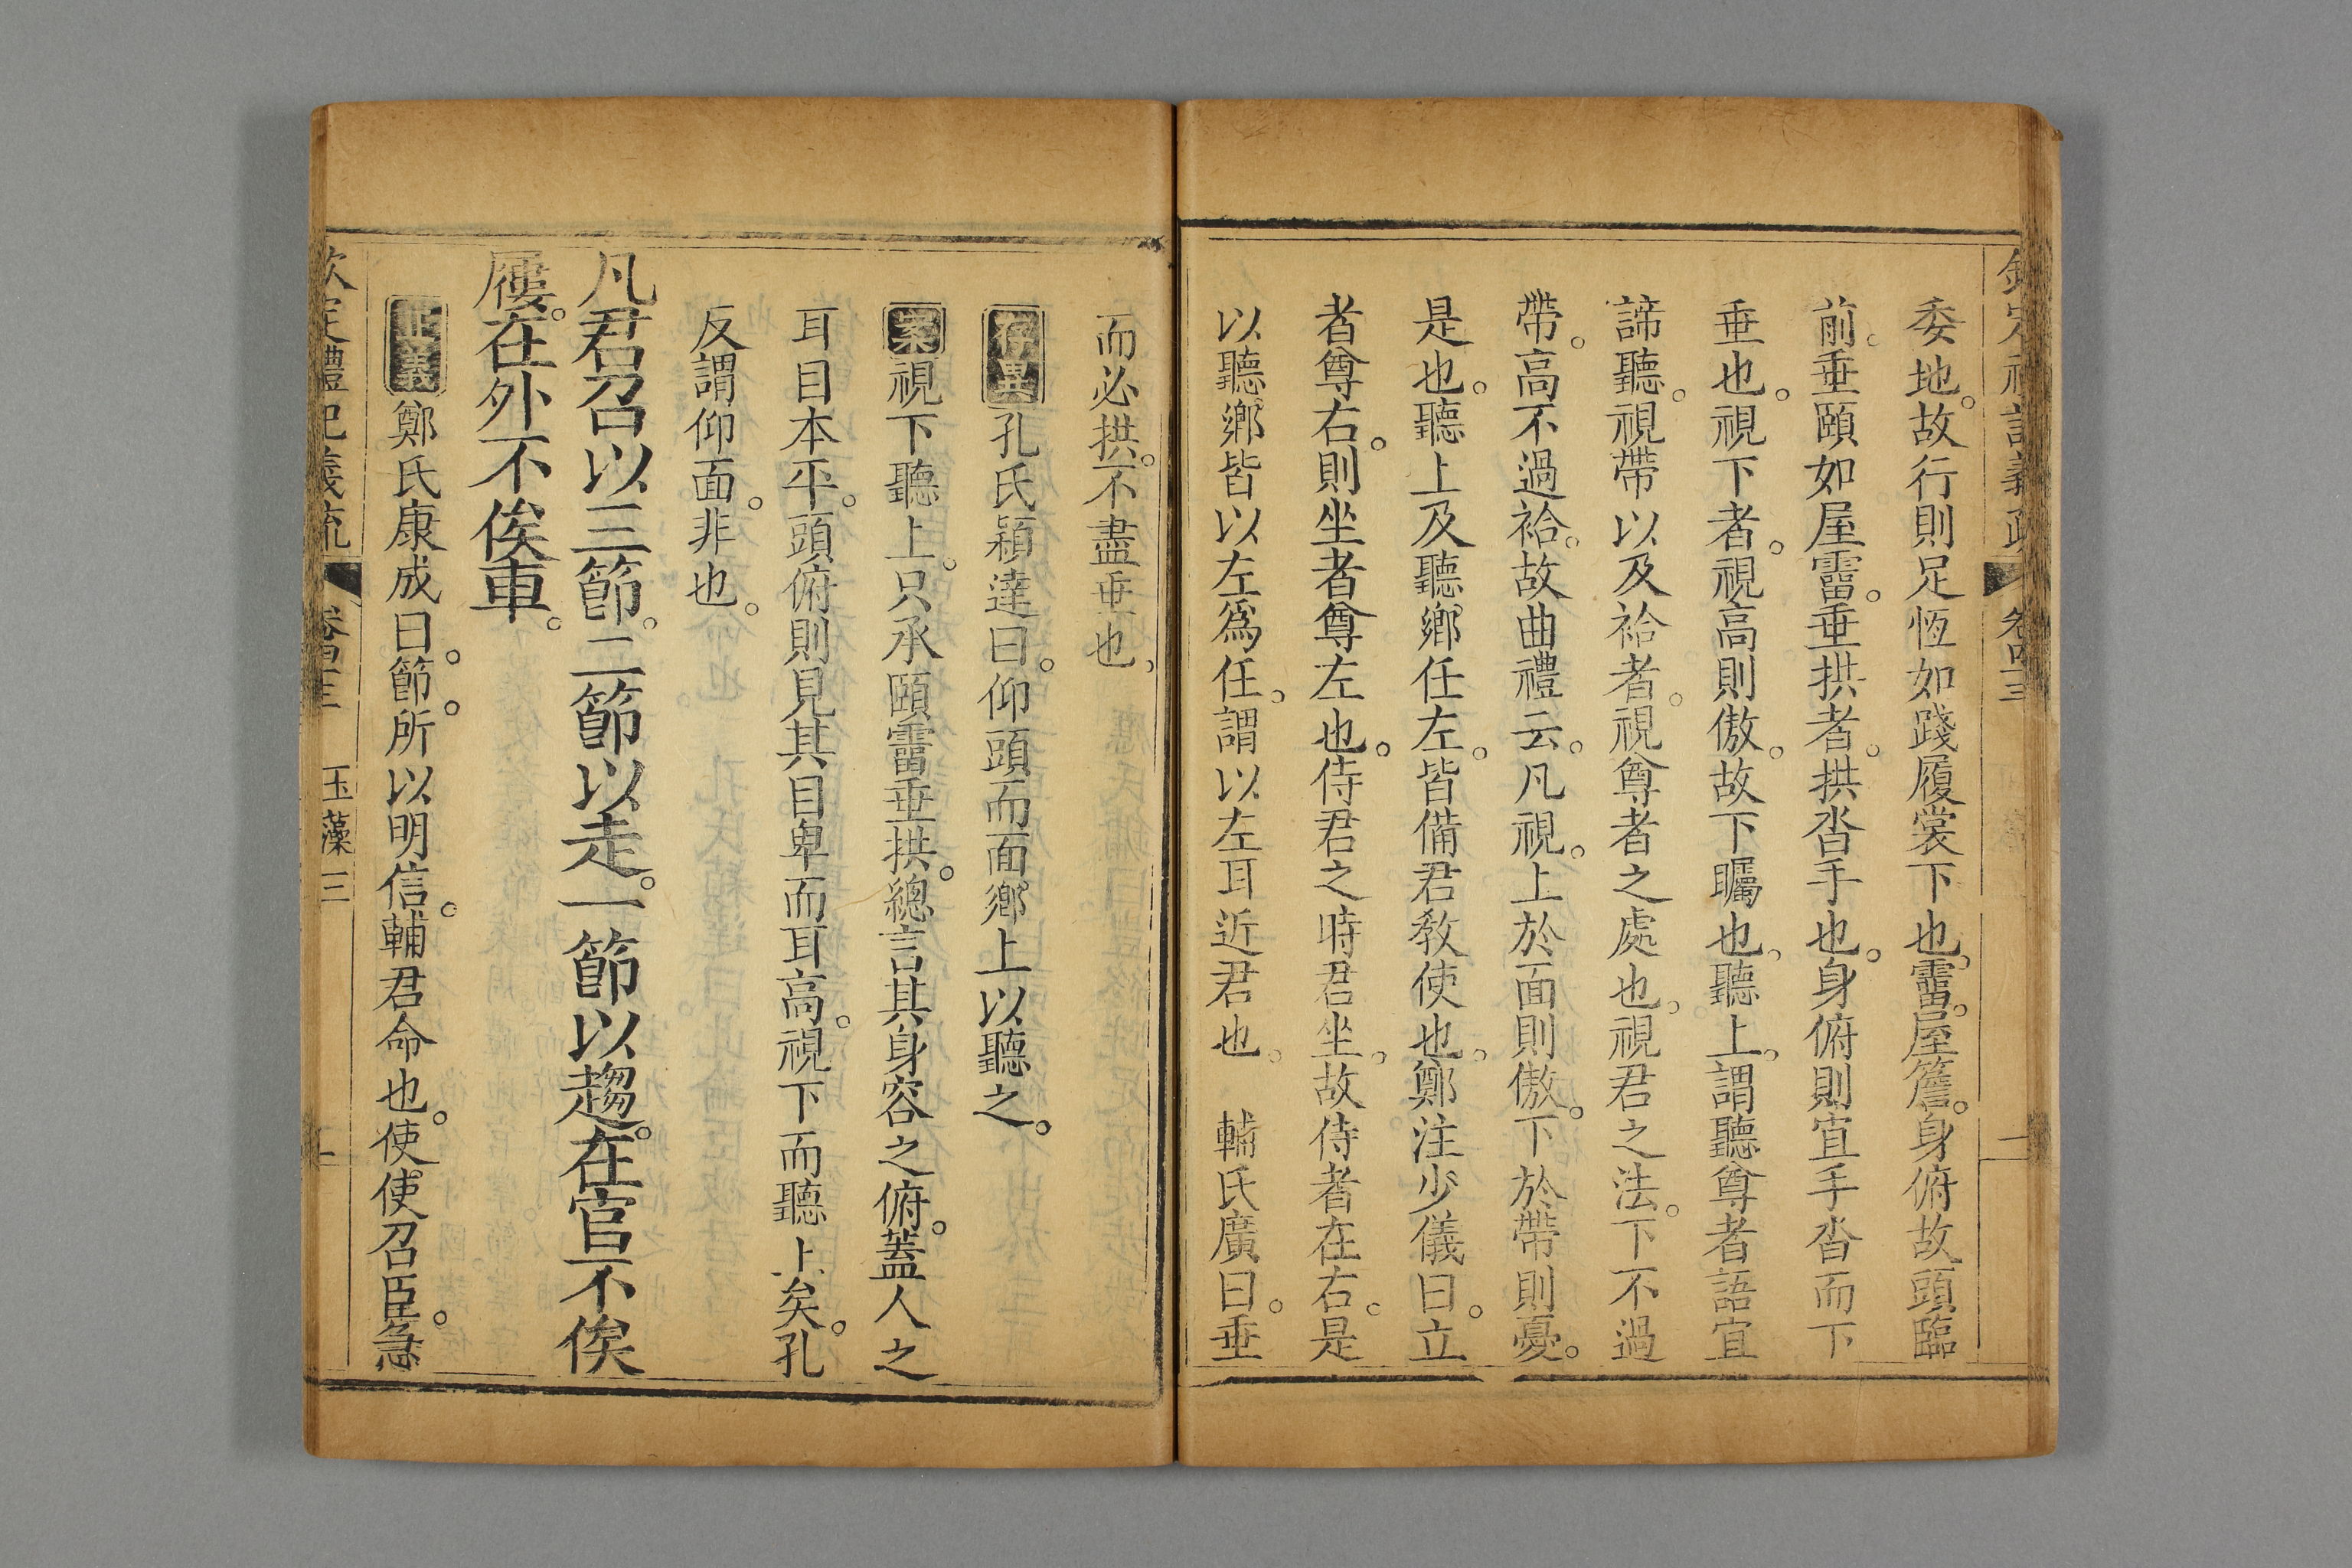 委地。故行則足恆如踐履裳下也。霤。屋簷。身俯故頭臨
前。垂頤如屋霤。垂拱者。拱沓手也。身俯則宜手沓而下
垂也。視下者。視高則傲。故下矚也。聽上。謂聽尊者語宜
諦聽。視帶以及袷者。視尊者之處也。視君之法。下不過
帶。高不過袷。故曲禮云。凡視。上於面則傲。下於帶則憂。
是也。聽上及聽鄉任左。皆備君教使也。鄭注少儀曰。立
者尊右。則坐者尊左也。侍君之時君坐。故侍者在右。是
以聽鄉皆以左爲任。謂以左耳近君也。 輔氏廣曰。垂
而必拱。不盡垂也。
存異孔氏穎達曰。仰頭而面鄉上以聽之。
案視下聽上。只承頤霤垂拱。總言其身容之俯。蓋人之
耳目本平。頭俯則見其目卑而耳高。視下而聽上矣。孔
反謂仰面。非也。
凡君召以三節。二節以走。一節以趨。在官不俟
屨。在外不俟車。
正義鄭氏康成曰。節。所以明信。輔君命也。使使召臣。急
欽定禮記義疏 卷四十三 玉藻三